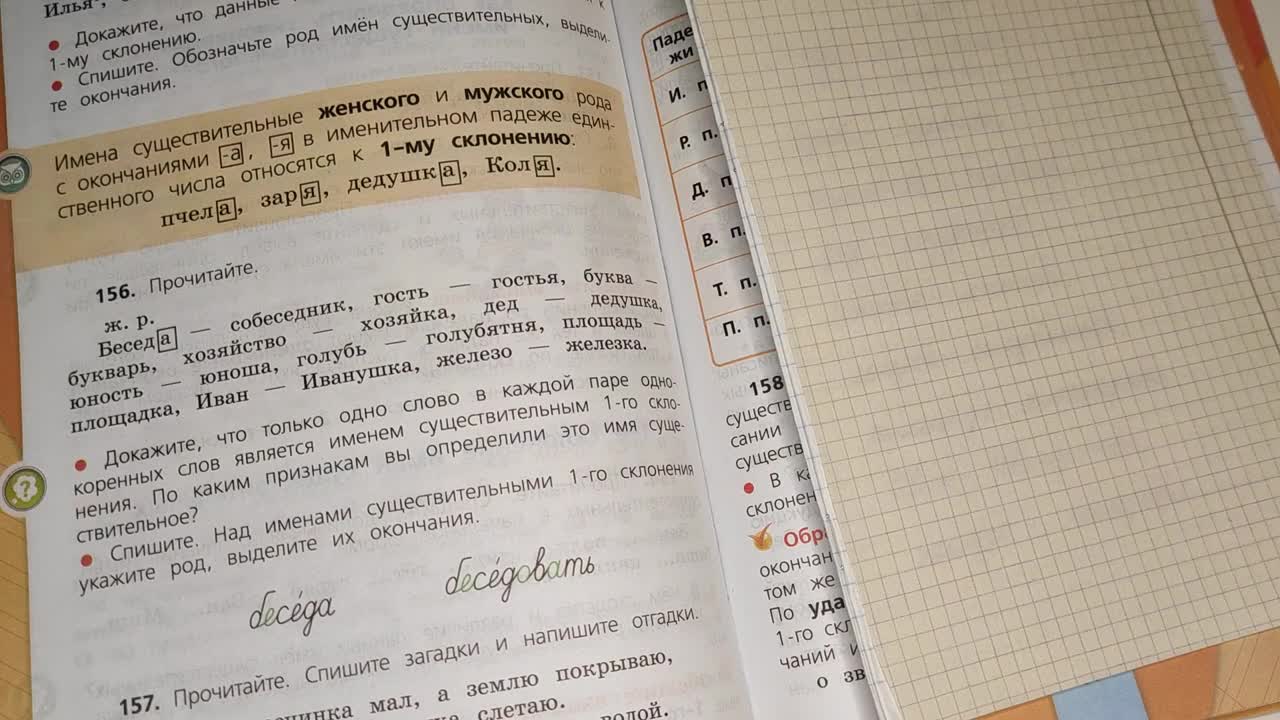 Илья
● Докажите, что данные
1-му склонению.
● Спишите. Обозначьте род имён существительных, выдели-
те окончания.
Имена существительные женского и мужского рода
с окончаниями -а, -я в именительном падеже един-
ственного числа относятся к 1-му склонению:
пчела, заря, дедушка, Коля.
156. Прочитайте.
ж. р.
Беседа — собеседник, гость — гостья, буква —
букварь, хозяйство — хозяйка, дед — дедушка,
юность — юноша, голубь — голубятня, площадь —
площадка, Иван — Иванушка, железо — железка.
● Докажите, что только одно слово в каждой паре одно-
коренных слов является именем существительным 1-го скло-
нения. По каким признакам вы определили это имя суще-
ствительное?
● Спишите. Над именами существительными 1-го склонения
укажите род, выделите их окончания.
бесе́да бесе́довать
157. Прочитайте. Спишите загадки и напишите отгадки.
мал, а землю покрываю,
слетаю.
водой.
Паде
жи
И. п
Р. п.
Д. п
В. п.
Т. п.
П. п.
158
сущест
сании
сущест
● В ка
склонен
Обр
окончан
том же
По уда
1-го скл
чаний и
о зв